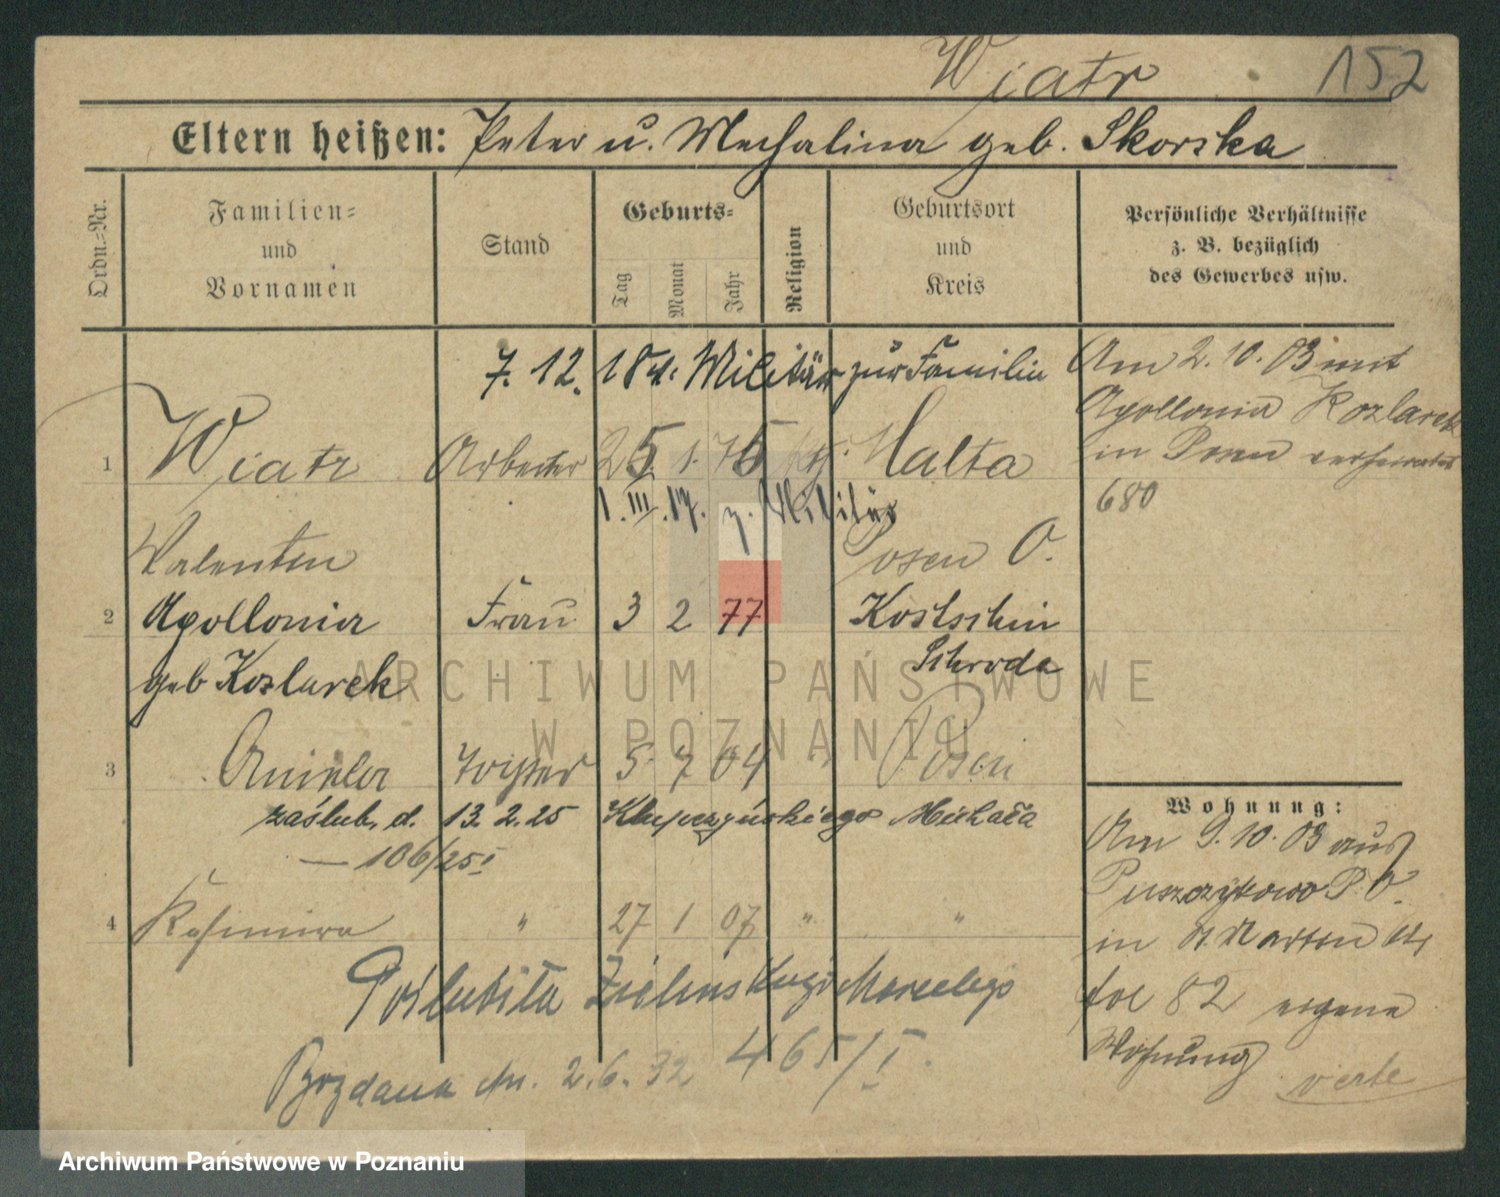 Wiatr 152
Eltern heißen: Peter u. Mechalina geb. Skorska
Ordn.-Nr.
Familien-
und
Vornamen
Stand
Geburts-
Tag
Monat
Jahr
Religion
Geburtsort
und
Kreis
Persönliche Verhältnisse
z. B. bezüglich
des Gewerbes usw.
7. 12. Militär zur Familie
1 Wiatr Arbeiter 25. 1. 75 Malta
1. III. 17. z. Militär
Valentin Posen O.
2 Apollonia Frau 3 2 77 Kostschin
geb Kozlarek Schroda
3 Aniela Tochter 5 7 04 Posen
zaślub. d. 13. 2. 25 Michała
— 106/25 I
4 Kasimira " 27 1 07 " "
Poślubiła Zielińskiego Marcelego
Bogdana dn. 2. 6. 32 465/I.
Am 2. 10. 03 mit
Apollonia Kozlarek
in Posen verheiratet
680
Wohnung:
Am 9. 10. 03 aus
Puszczykowo P. O.
in St Martin
82 eigene
Wohnung
verte
ARCHIWUM PAŃSTWOWE
W POZNANIU
Archiwum Państwowe w Poznaniu